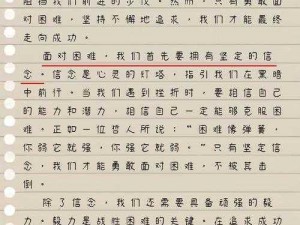 阻碍我们前进的步伐。然而，只有勇敢面
对困难，坚持不懈地追求，我们才能最终
走向成功。
面对困难，我们首先要拥有坚定的信
念。信念是心灵的灯塔，指引我们在黑暗
中前行。当我们遇到挫折时，要相信自己
的能力和潜力，相信自己一定能够克服困
难。正如一位哲人所说：“困难像弹簧，
你弱它就强，你强它就弱。”只有坚定信
念，我们才能勇敢面对困难，不被其击
倒。
除了信念，我们还需要具备顽强的毅
力。毅力是战胜困难的关键。在追求成功